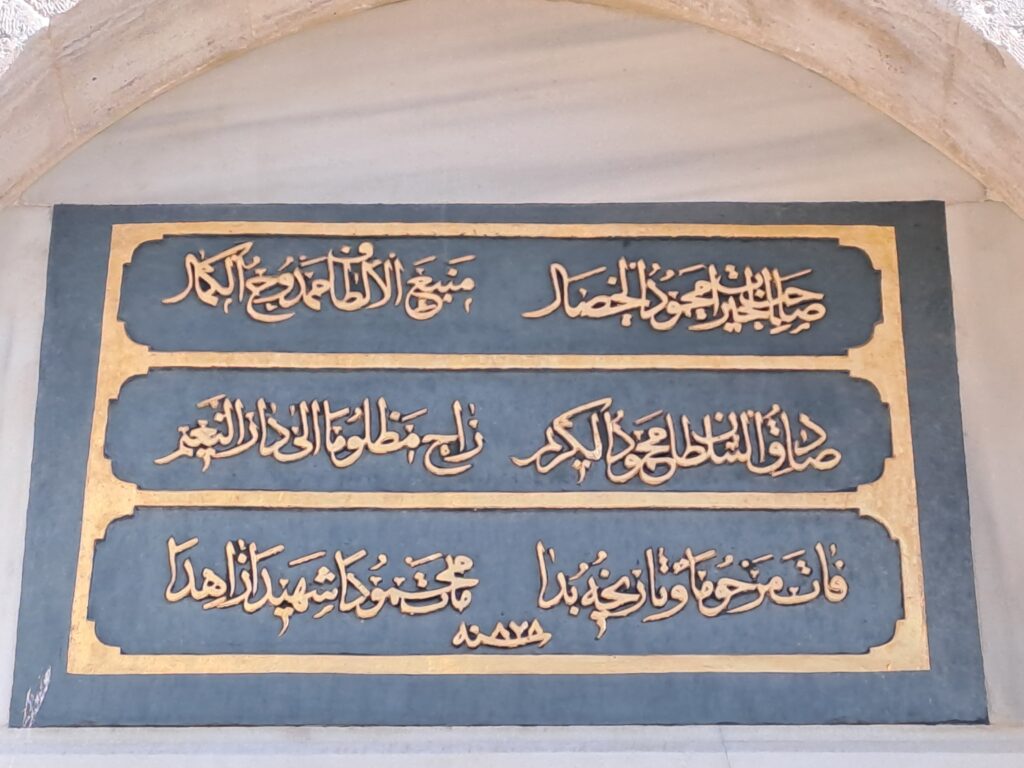 صاحب الخيرات محمود الخصال منبع الالطاف ممدوح الكمال
صادق السلطان محمود الكريم راح مظلوما الى دار النعيم
فات مرحوما و تاريخه بدا مات محمودا شهيدا زاهدا
سنه ٨٧٨